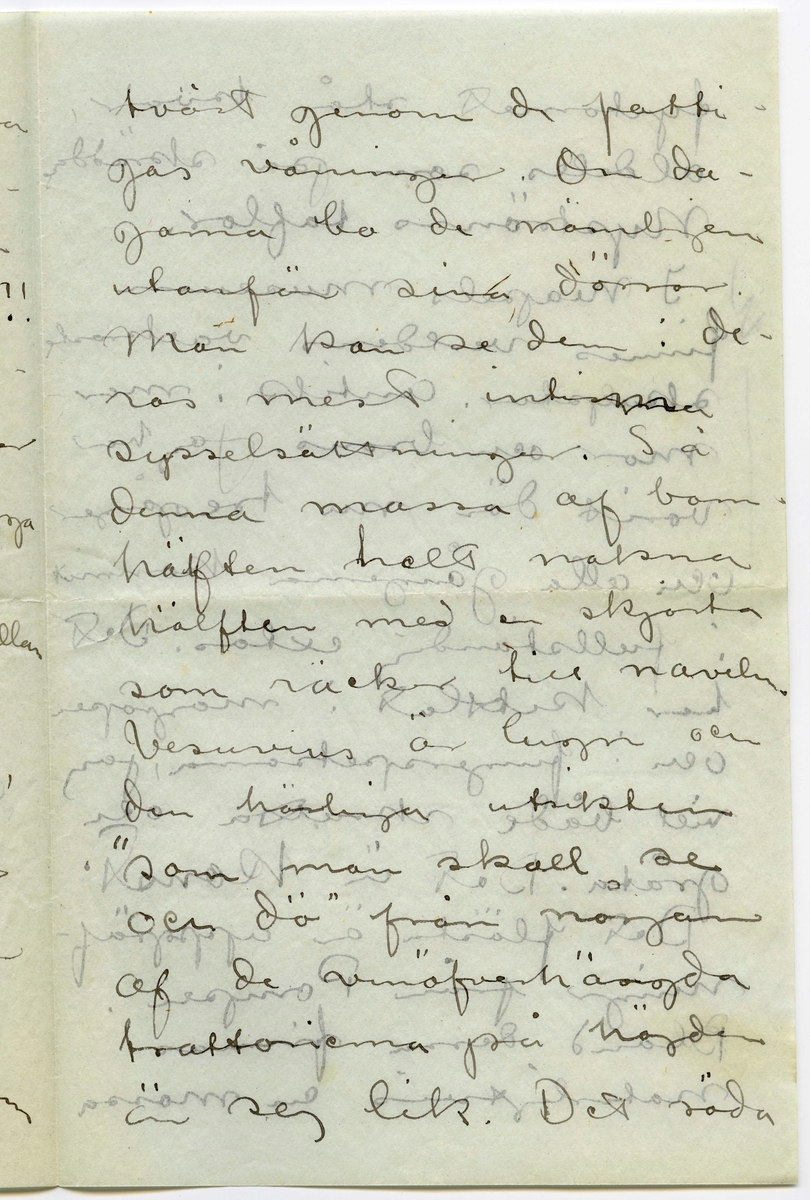 tvärt genom de patti-
gas våningar. Om da-
garna bo de nämligen
utanför sina dörrar.
Man kan se dem i de-
ras mest intima
sysselsättningar. Så
denna massa af barn
hälften helt nakna
hälften med en skjorta
som räcker till naveln.
Vesuvius är lugn och
den härliga utsikten
"som man skall se
och dö" från någon
af de vinöfverhängda
trattorierna på höjden
är sej lik. Det röda